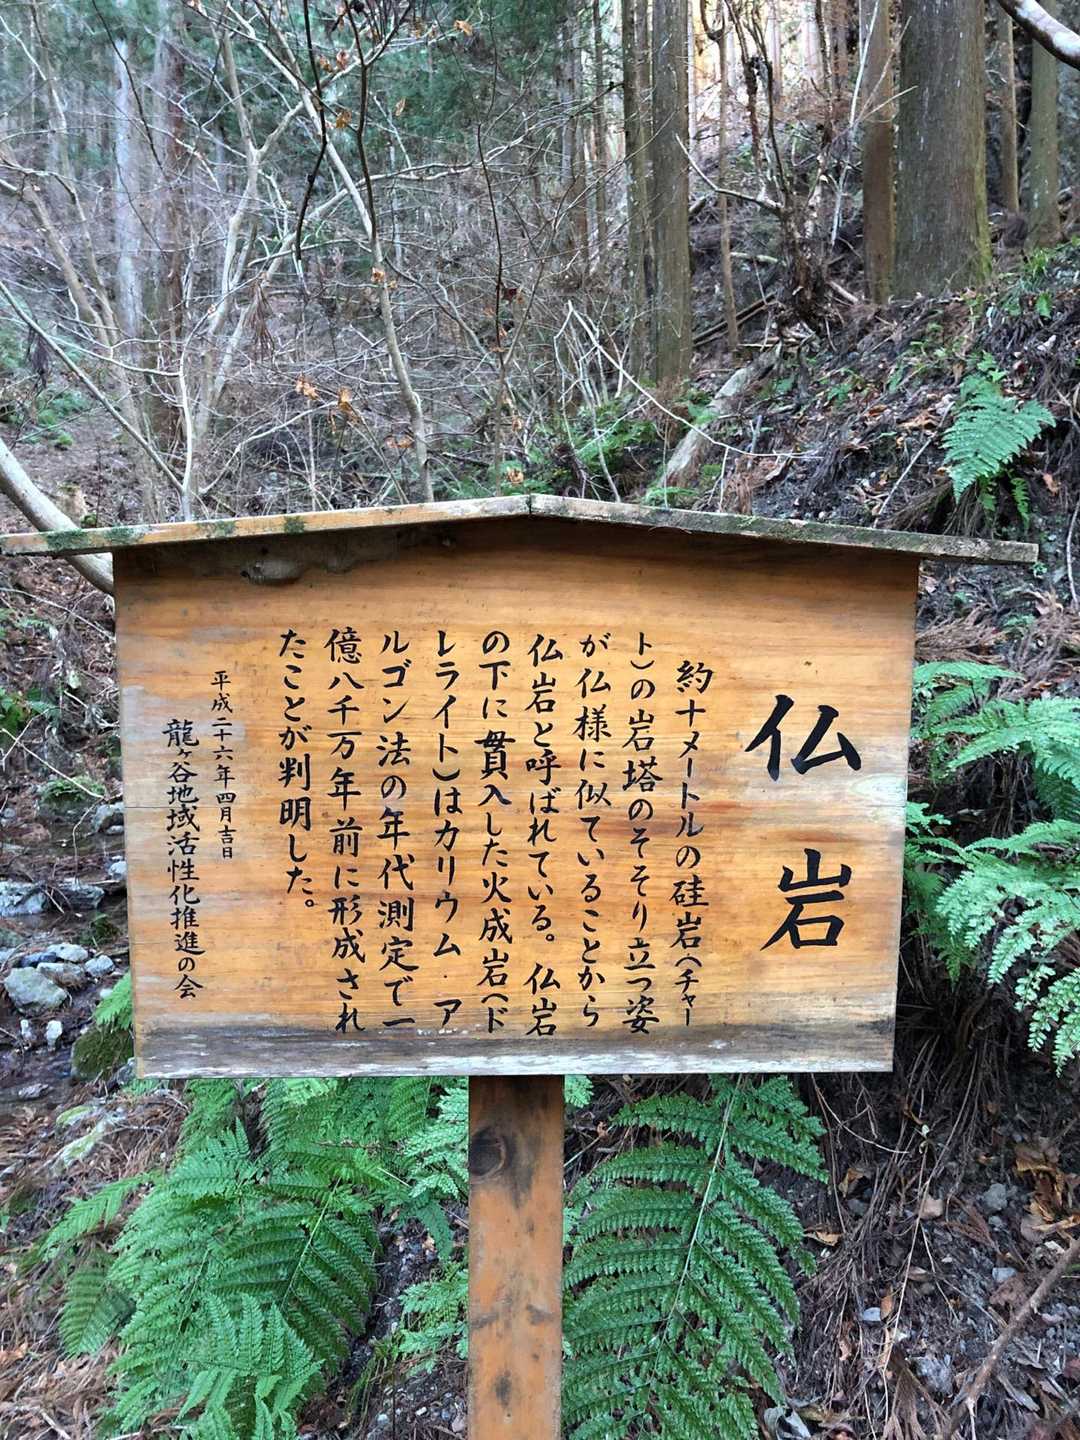 仏岩
約十メートルの硅岩（チャー
ト）の岩塔のそそり立つ姿
が仏様に似ていることから
仏岩と呼ばれている。仏岩
の下に貫入した火成岩（ド
レライト）はカリウム・ア
ルゴン法の年代測定で一
億八千万年前に形成され
たことが判明した。
平成二十六年四月吉日
龍ヶ谷地域活性化推進の会